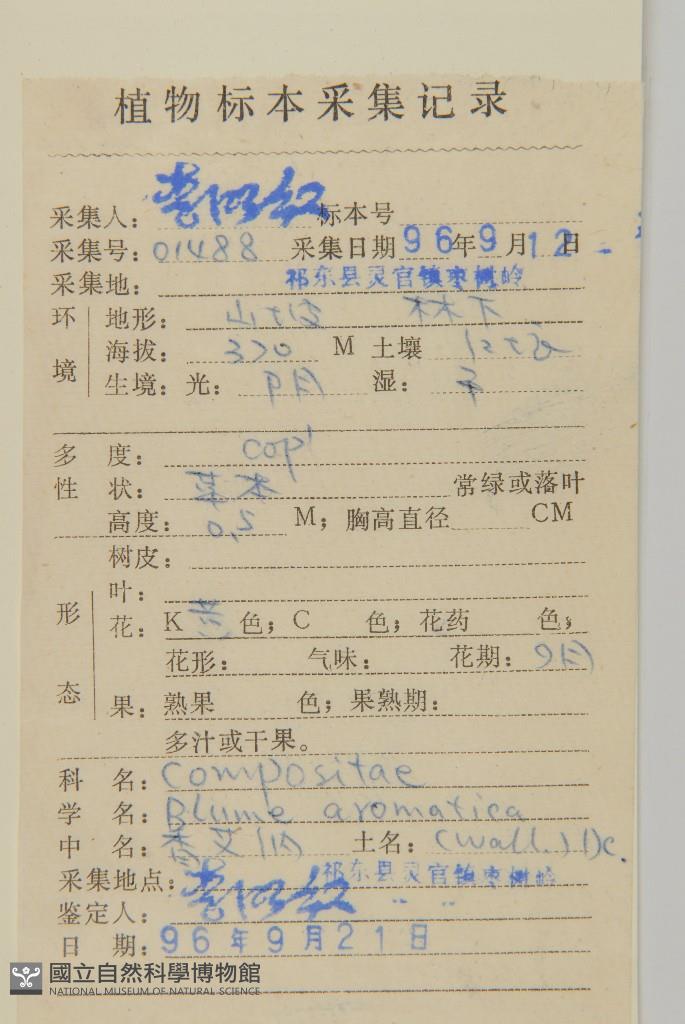 植物标本采集记录
采集人: 标本号
采集号: 01488 采集日期 96年9月12日
采集地: 祁东县灵官镇枣树岭
环境 地形: 山坡 林下
海拔: 370 M 土壤 红壤
生境: 光: 阴 湿: 干
多度: cop1
性状: 草本 常绿或落叶
高度: 0.5 M; 胸高直径 CM
形态 树皮:
叶:
花: K 黄色; C 色; 花药 色;
花形: 气味: 花期: 9月
果: 熟果 色; 果熟期:
多汁或干果。
科名: Compositae
学名: Blume aromatica
中名: 香艾纳 土名: (Wall.) Dc.
采集地点: 祁东县灵官镇枣树岭
鉴定人: " "
日期: 96年9月21日
國立自然科學博物館
NATIONAL MUSEUM OF NATURAL SCIENCE